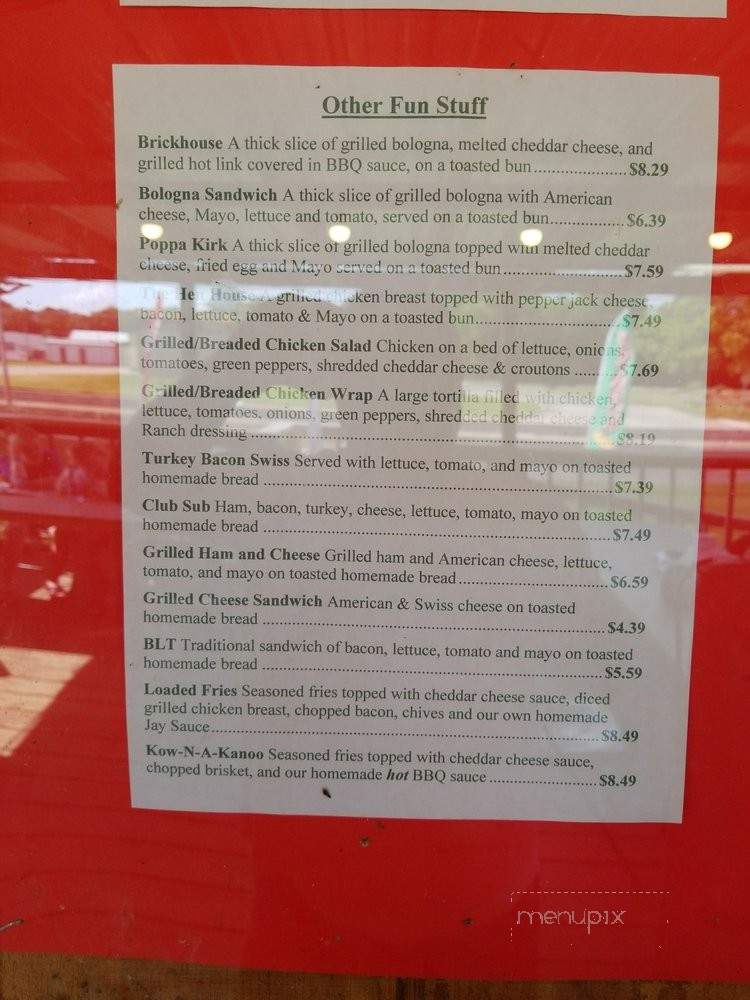 Other Fun Stuff
Brickhouse A thick slice of grilled bologna, melted cheddar cheese, and
grilled hot link covered in BBQ sauce, on a toasted bun......................$8.29
Bologna Sandwich A thick slice of grilled bologna with American
cheese, Mayo, lettuce and tomato, served on a toasted bun.................$6.39
Poppa Kirk A thick slice of grilled bologna topped with melted cheddar
cheese, fried egg and Mayo served on a toasted bun............................$7.59
The Hen House A grilled chicken breast topped with pepper jack cheese,
bacon, lettuce, tomato & Mayo on a toasted bun..................................$7.49
Grilled/Breaded Chicken Salad Chicken on a bed of lettuce, onions,
tomatoes, green peppers, shredded cheddar cheese & croutons ..........$7.69
Grilled/Breaded Chicken Wrap A large tortilla filled with chicken,
lettuce, tomatoes, onions, green peppers, shredded cheddar cheese and
Ranch dressing ....................................................................................$8.19
Turkey Bacon Swiss Served with lettuce, tomato, and mayo on toasted
homemade bread .................................................................................$7.39
Club Sub Ham, bacon, turkey, cheese, lettuce, tomato, mayo on toasted
homemade bread .................................................................................$7.49
Grilled Ham and Cheese Grilled ham and American cheese, lettuce,
tomato, and mayo on toasted homemade bread...................................$6.59
Grilled Cheese Sandwich American & Swiss cheese on toasted
homemade bread ................................................................................$4.39
BLT Traditional sandwich of bacon, lettuce, tomato and mayo on toasted
homemade bread ................................................................................$5.59
Loaded Fries Seasoned fries topped with cheddar cheese sauce, diced
grilled chicken breast, chopped bacon, chives and our own homemade
Jay Sauce............................................................................................$8.49
Kow-N-A-Kanoo Seasoned fries topped with cheddar cheese sauce,
chopped brisket, and our homemade hot BBQ sauce .........................$8.49
menupix